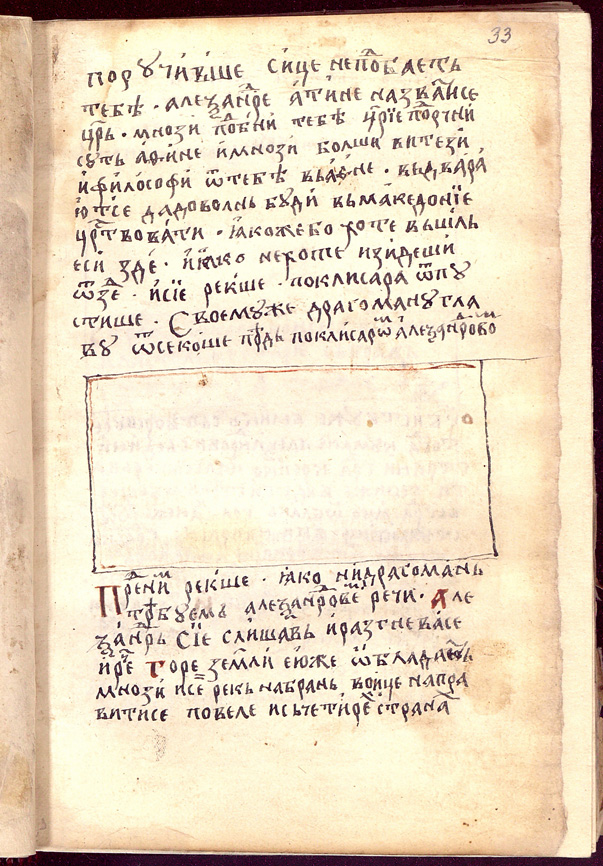 33
порꙋчивьше сице неподобаеть
тебѣ · алеѯандре атине назватисе
црь · мнози подобни тебѣ црїе порчни
сꙋть аѳине и мнози болши витези
и философи ѿ тебѣ
ютсе да доволнь бꙋди вь македонїе
црствовати · ꙗкоже бо хоте вьшль
еси зде · и нехоте изидеши
ѿзде · и сїе рекше · поклисара ѿпꙋ
стише · Своемꙋже драгоманꙋ гла
вꙋ ѿсекоше прдь поклисаром алеѯандровο
Прени рекше · ꙗко ни драгомань
требꙋемь алеѯандрове речи · Але
ѯандрь сїе слишавь и разгневасе
и рче горе земли еюже ѿбладають
мнози и се рекь на брань воице напра
витисе повеле и сь четире странаⷯ